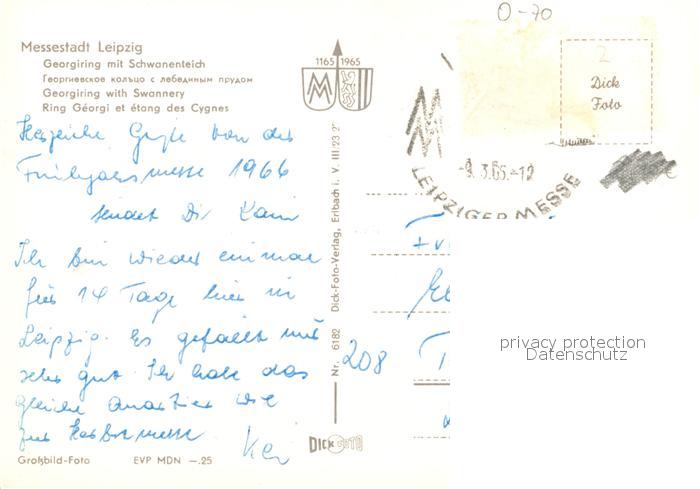 O-70
Messestadt Leipzig
Georgiring mit Schwanenteich
Георгиевское кольцо с лебединым прудом
Georgiring with Swannery
Ring Géorgi et étang des Cygnes
1165 1965
2
Dick
Foto
-9.3.66.-12
LEIPZIGER MESSE
Herzliche Grüße von der
Frühjahrsmesse 1966
sendet Dir
Ich bin wieder einmal
für 14 Tage hier in
Leipzig. Es gefällt mir
sehr gut. Ich habe das
gleiche Quartier wie
zur Herbstmesse.
208
privacy protection
Datenschutz
Nr. 6182 Dick-Foto-Verlag, Erlbach i. V. III/23 2
DICK FOTO
Großbild-Foto EVP MDN —.25